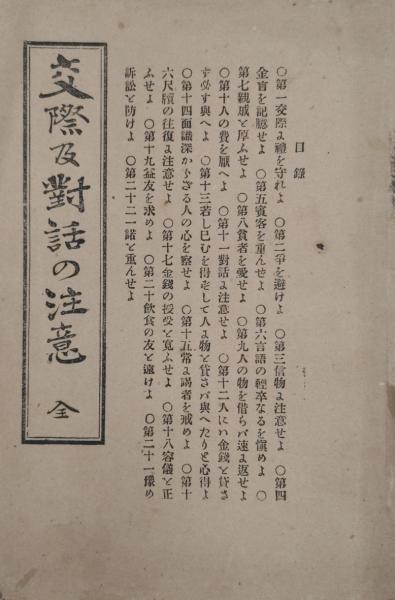 目錄
〇第一交際ま禮を守れよ 〇第二爭を避けよ 〇第三信物ま注意せよ 〇第四
金言を記臆せよ 〇第五賓客を重んせよ 〇第六言語の輕卒なるを愼めよ 〇
第七親戚と厚ふせよ 〇第八貧者を愛せよ 〇第九人の物を借らバ速ま返せよ
〇第十人の費を厭へよ 〇第十一對話ま注意せよ 〇第十二人にハ金錢と貸さ
す必す與へよ 〇第十三若し已むを得ずして人ま物と貸さバ與へたりと心得よ
〇第十四面識深からざる人の心を察せよ 〇第十五常ま謁者を戒めよ 〇第十
六尺牘の往復ま注意せよ 〇第十七金錢の授受と寬ふせよ 〇第十八容儀と正
ふせよ 〇第十九益友を求めよ 〇第二十飮食の友と遠けよ 〇第二十一豫め
訴訟と防けよ 〇第二十二一諾と重んせよ
交際及對話の注意 全